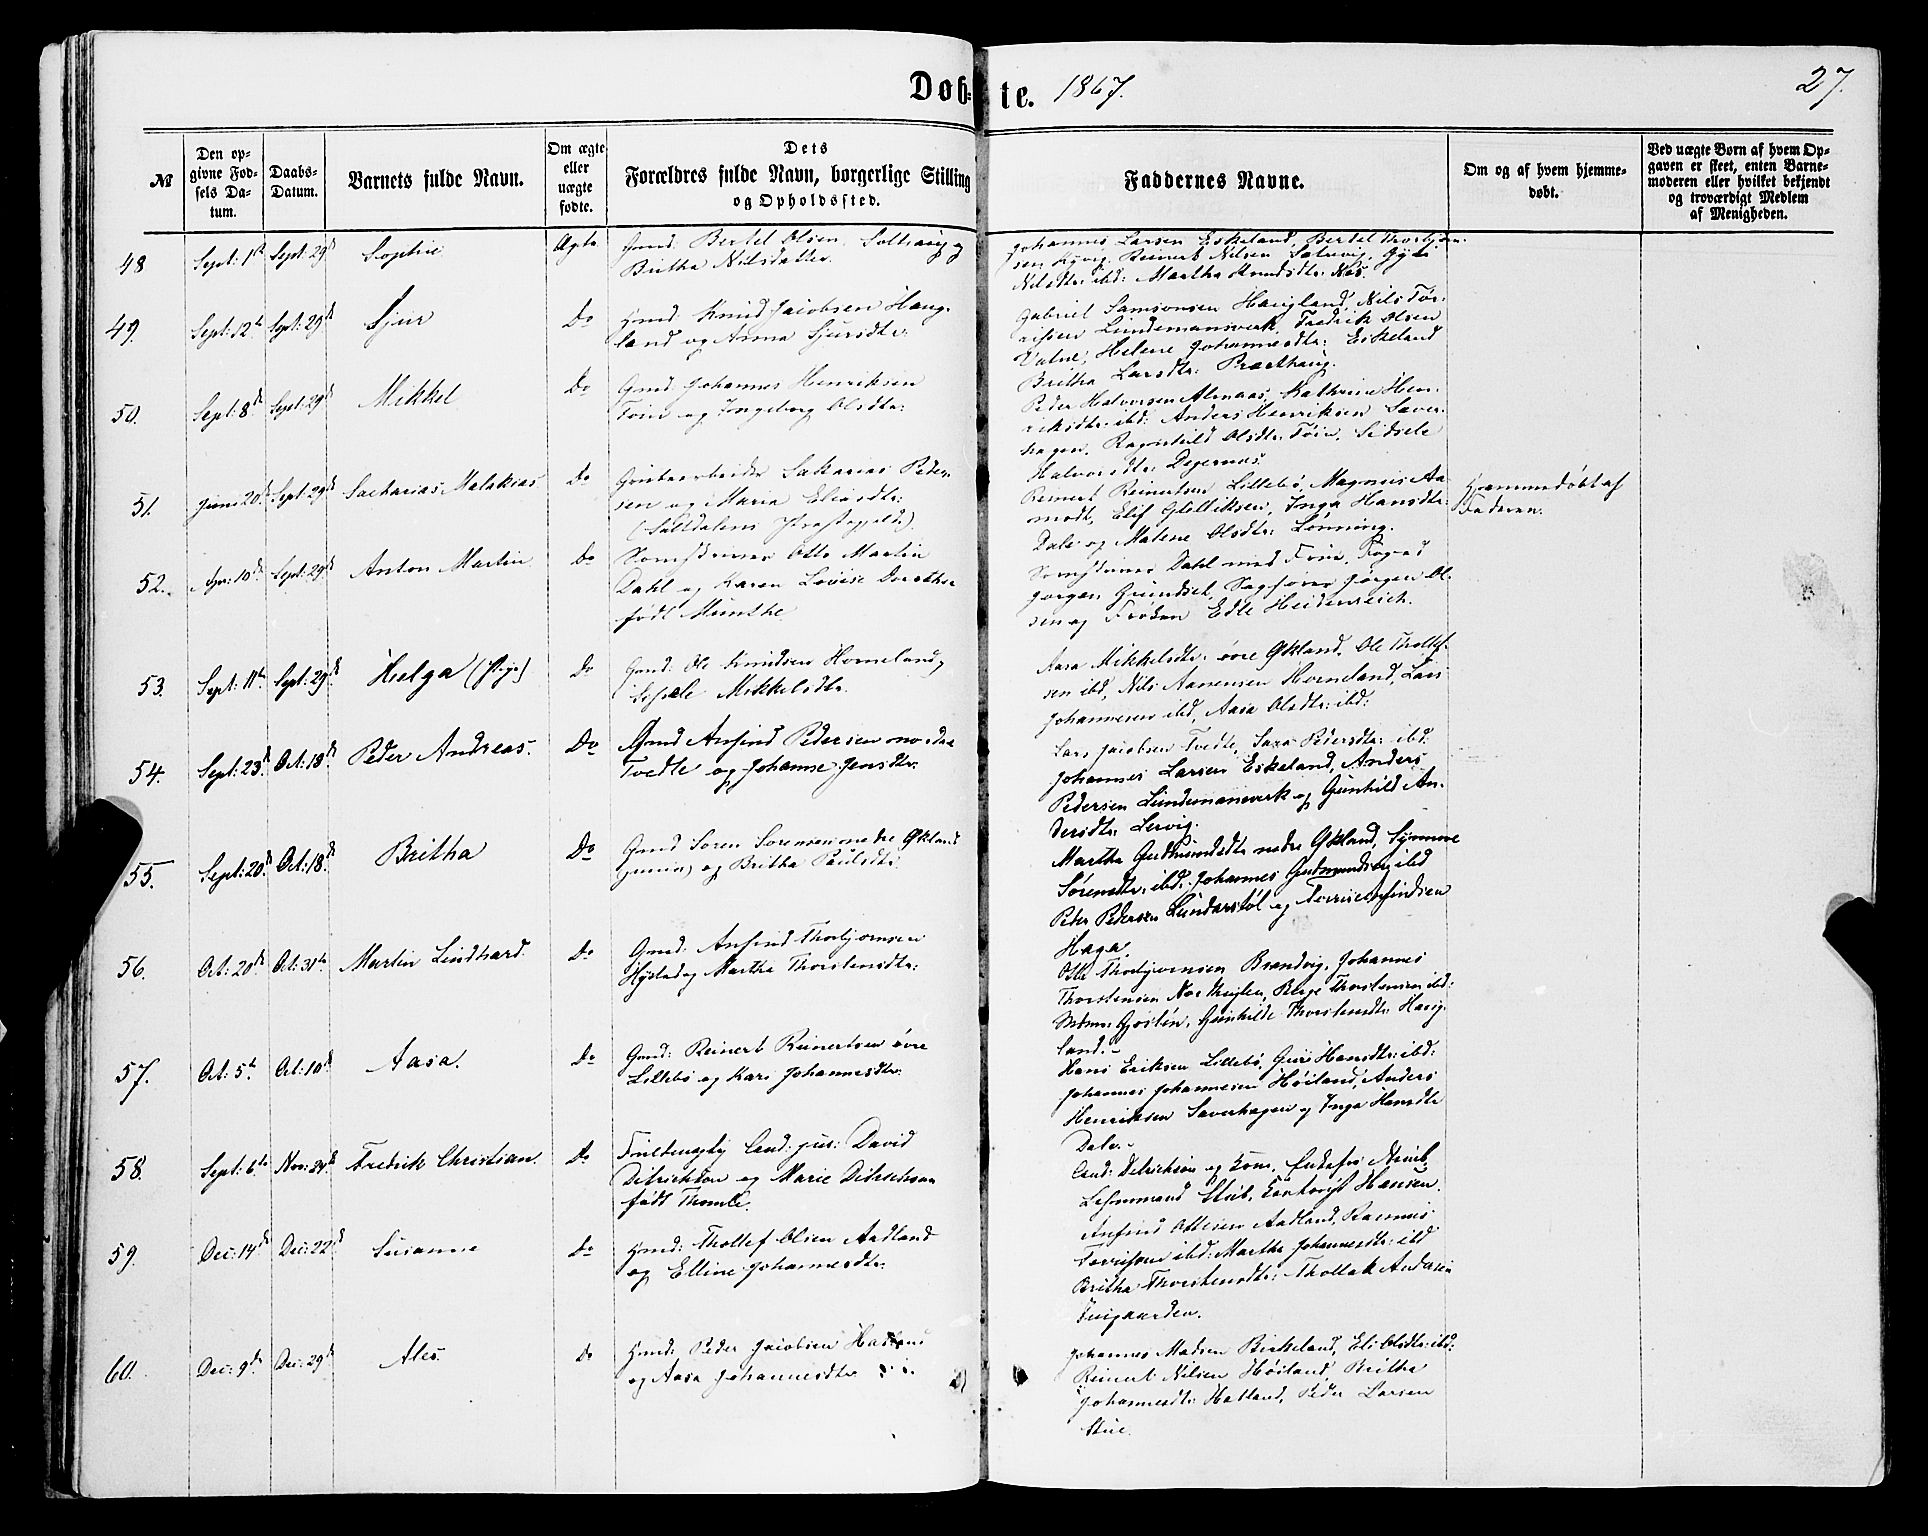 Døb-te. 1867.
27.
№
Den op-
givne Fød-
sels Da-
tum.
Daabs-
Datum.
Barnets fulde Navn.
Om ægte
eller
uægte
fødte.
Dets
Forældres fulde Navn, borgerlige Stilling
og Opholdssted.
Faddernes Navne.
Om og af hvem hjemme-
døbt.
Ved uægte Børn af hvem Op-
gaven er skeet, enten Barne-
moderen eller hvilket bekjendt
og troværdigt Medlem
af Menigheden.
48 Sept: 1st Sept: 29d Sophie Ægte
Gmd: Bertel Olsen Solhaug og
Britha Nilsdatter
Johannes Larsen Eskeland, Bertel Thorbjørn-
sen Nilsen
Nilsdtr: ibd: Martha Knudsdtr: Næs.
49. Sept: 12te Sept: 29d Sjur Do
Hmd: Knud Jacobsen Haug-
land og Anna Sjursdtr:
Gabriel Samsonsen Haugland, Nils Tør-
risen Lundemansverk, Fredrik Olsen
Valne, Helene Johannesdtr: Eskeland
Britha Larsdtr: Braathaug.
50. Sept: 8d Sept: 29d Mikkel Do
Gmd: Johannes Henriksen
Tøin og Ingeborg Olsdtr:
Peder Halvorsen Almaas, Kathrine Hen-
riksdtr: ibd: Anders Henriksen Saver-
hagen, Ragnhild Olsdtr: Tøin, Sidsele
Halvorsdtr: Degernæs.
51. Juni 20d Sept: 29d Sacharias Malakias Do
Grubearbeider Sakarias Peder-
sen og Maria Eliasdtr:
(Saltdalens Præstegjeld).
Reinert Reinertsen Lillebø, Magnus Aa
modt, Elif Inga Hansdtr:
Dale og Malene Olsdtr: Lønning.
Hjemmedøbt af
Faderen.
52. Apr: 10de Sept: 29d Anton Martin Do
Sorenskriver Otto Martin
Dahl og Karen Lovise Dorothea
født Munthe
Sorenskriver Dahl med Frue, Foged
Jørgen Grundset, Sagfører Jørgen Ol-
sen og Frøken Edle Heidenreich.
53. Sept: 11te Sept: 29d Helga (Pige) Do
Gmd: Ole Knudsen Horneland og
Mikkelsdtr.
Aasa Mikkelsdtr: øvre Økland, Ole Thollef-
sen ibd, Nils Aanensen Horneland, Lars
Johannesen ibd, Aasa Olsdtr: ibd:
54. Sept: 23d Oct: 18d Peder Andreas. Do
Gmd Anfind Pedersen nordre
Tvedte og Johanne Jensdtr:
Lars Jacobsen Tvedte, Sara Pedersdtr: ibd:
Johannes Larsen Eskeland, Anders
Pedersen Lundemansverk og Gunhild An-
dersdtr: Lervig.
55. Sept: 20d Oct: 18d Britha Do
Gmd Soren Sorensen nedre Økland
junior og Britha Paulsdtr:
Martha Gudmundsdtr nedre Økland, Synneve
Sørensdtr: ibd: Johannes Gudmundsen ibd
Peder Pedersen Lundarstøl og Tørris Anfindsen
Haga.
56. Oct: 20de Oct: 31te Martin Lindhard. Do
Gmd: Anfind Thorbjørnsen
og Martha Thorstensdtr:
Otto Thorbjørnsen Brandvig, Johannes
Thorstensen Berge Thorstensen ibd:
Gunhilde Thorstensdtr Haug-
land.
57. Oct: 5te Oct: 10de Aasa. Do
Gmd: Reinert Reinertsen øvre
Lillebø og Kari Johannesdtr:
Hans Eriksen Lillebø, Guri Hansdtr: ibd:
Johannes Johannesen Høiland, Anders
Henriksen Saverhagen og Inga Hansdtr
Dale.
58. Sept: 6te Nov: 24d Fredrik Christian. Do
Cand: jur: David
Ditrichson og Marie Ditrichson
født Thomle.
Cand: Ditrichson og Kone,
Lehnsmand Stub, Hansen.
59. Dec: 14de Dec: 22d Susanne Do
Hmd: Thollef Olsen Aadland
og Elline Johannesdtr:
Anfind Ottesen Aadland, Rasmus
Tørrisen ibd: Martha Johannesdtr: ibd
Britha Thorstensdtr: Thollak Andersen
60. Dec: 9de Dec: 29de Ales. Do
Hmd: Peder Jacobsen Hatland
og Aasa Johannesdtr
Johannes Madsen Birkeland, Eli Olsdtr: ibd:
Reinert Nilsen Høiland, Britha
Johannesdtr: Hatland, Peder Larsen
Stue.